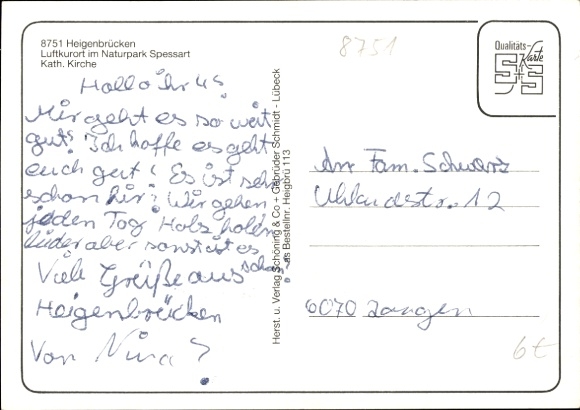 8751 Heigenbrücken
Luftkurort im Naturpark Spessart
Kath. Kirche
Hallo ihr 4!
Mir geht es so weit
gut! Ich hoffe es geht
euch gut! Es ist sehr
schön hir! Wir gehen
jeden Tag Holz holen
lider aber sonst ist es
schön
Viele Grüße aus
Heigenbrücken
Von Nina!
Herst. u. Verlag Schöning & Co + Gebrüder Schmidt - Lübeck
Bestellnr. Heigbrü 113
8751
Qualitäts-
Karte
S+S
An Fam. Schwarz
Uhlandstr. 12
6070 Langen
6t